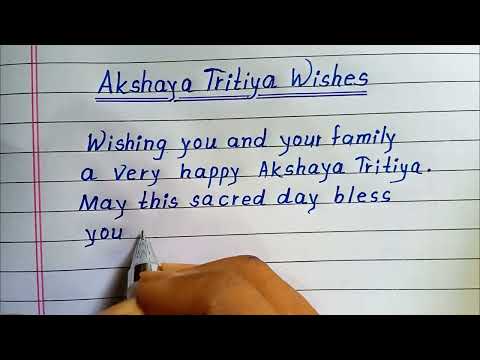 Akshaya Tritiya Wishes
Wishing you and your family
a very happy Akshaya Tritiya.
May this sacred day bless
you